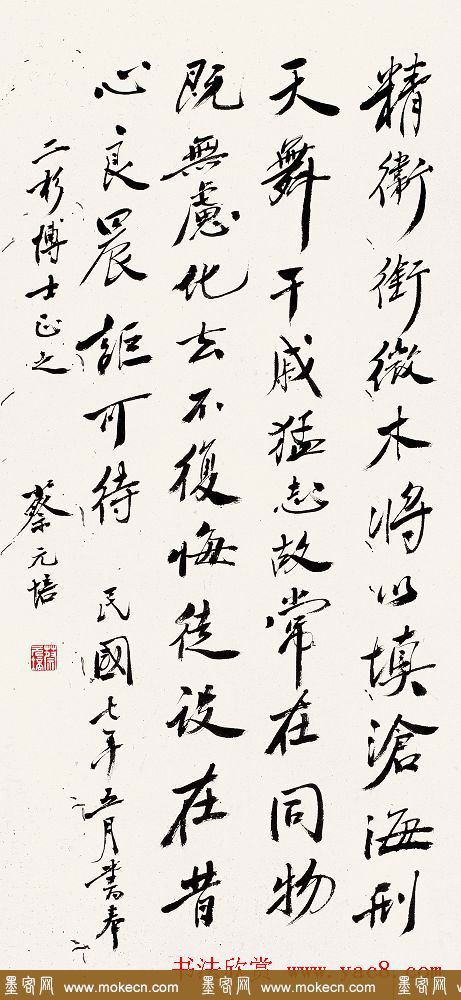 精衛銜微木將以填滄海刑
天舞干戚猛志故常在同物
既無慮化去不復悔徒設在昔
心良晨詎可待 民國七年五月書奉
二杉博士正之 蔡元培
书法欣赏 www.yac8.com
墨客网 www.mokecn.com 墨客网 www.mokecn.com 墨客网 www.mokecn.com